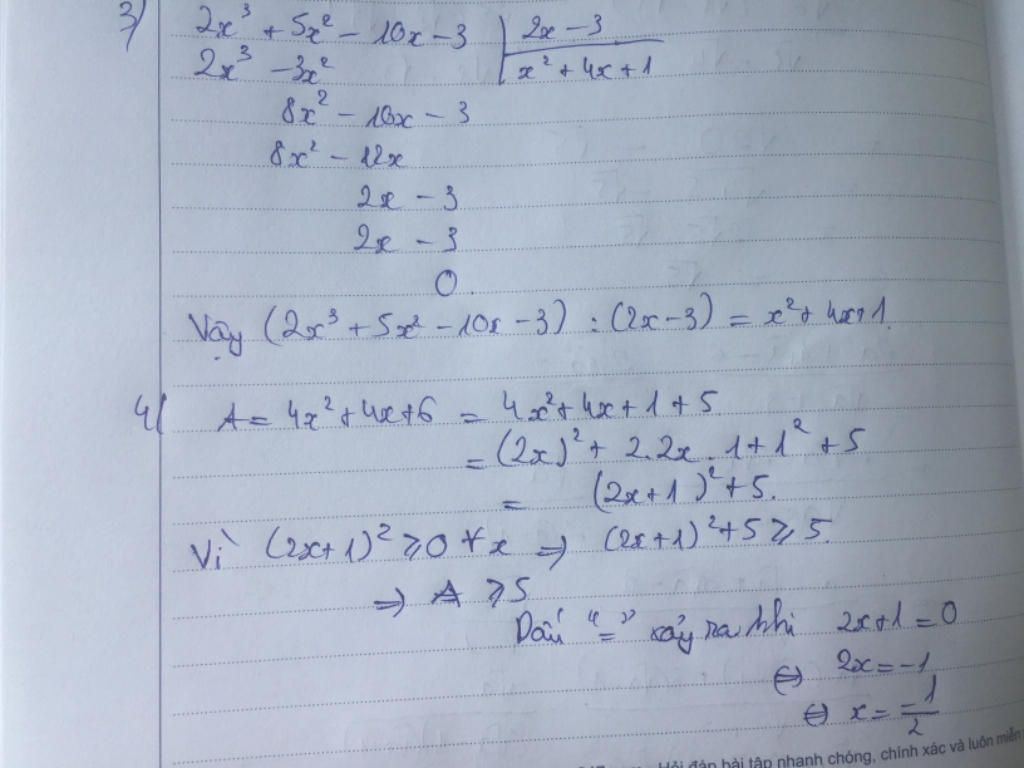 3) 2x³ + 5x² - 10x - 3 | 2x - 3
2x³ - 3x² | x² + 4x + 1
8x² - 10x - 3
8x² - 12x
2x - 3
2x - 3
0
Vậy (2x³ + 5x² - 10x - 3) : (2x - 3) = x² + 4x + 1.
4) A = 4x² + 4x + 6 = 4x² + 4x + 1 + 5
= (2x)² + 2.2x.1 + 1² + 5
= (2x + 1)² + 5.
Vì (2x + 1)² ⩾ 0 ∀x ⇒ (2x + 1)² + 5 ⩾ 5.
⇒ A ⩾ 5
Dấu "=" xảy ra khi 2x + 1 = 0
⇔ 2x = -1
⇔ x = -1/2
Hỏi đáp bài tập nhanh chóng, chính xác và luôn miễn